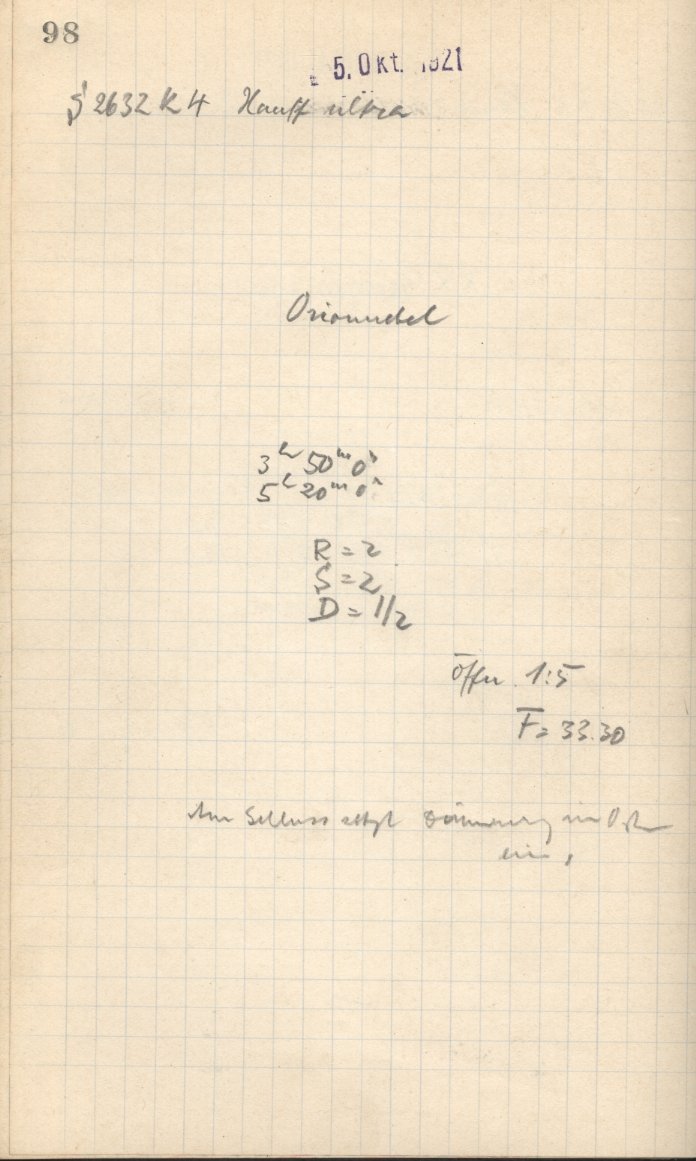 98
5. Okt. 1921
2632 K 4 Hauff ultra
Orionnebel
3h 50m 0s
5h 20m 0s
R = 2
S = 2
D = 1/2
Öffn. 1:5
F = 33.30
Am Schluss setzt Dämmerung im Osten
ein.